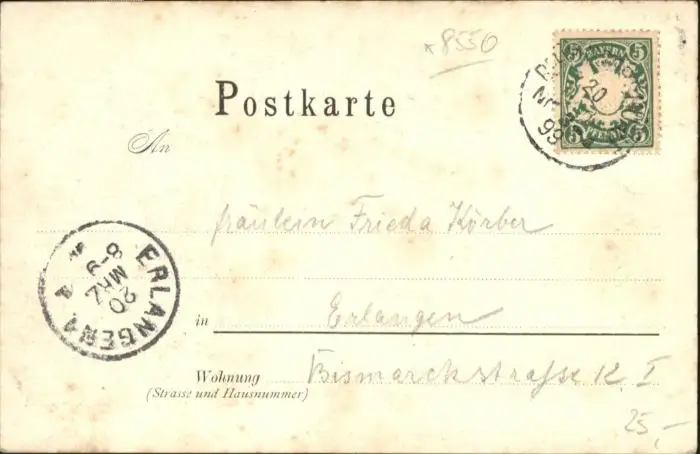 *8550
Postkarte
5 BAYERN 5
20
MRZ
99
An
Fräulein Frieda Körber
ERLANGEN 1
8-9
MRZ
20
in Erlangen
Wohnung Bismarckstraße 12 I
(Strasse und Hausnummer)
25,-